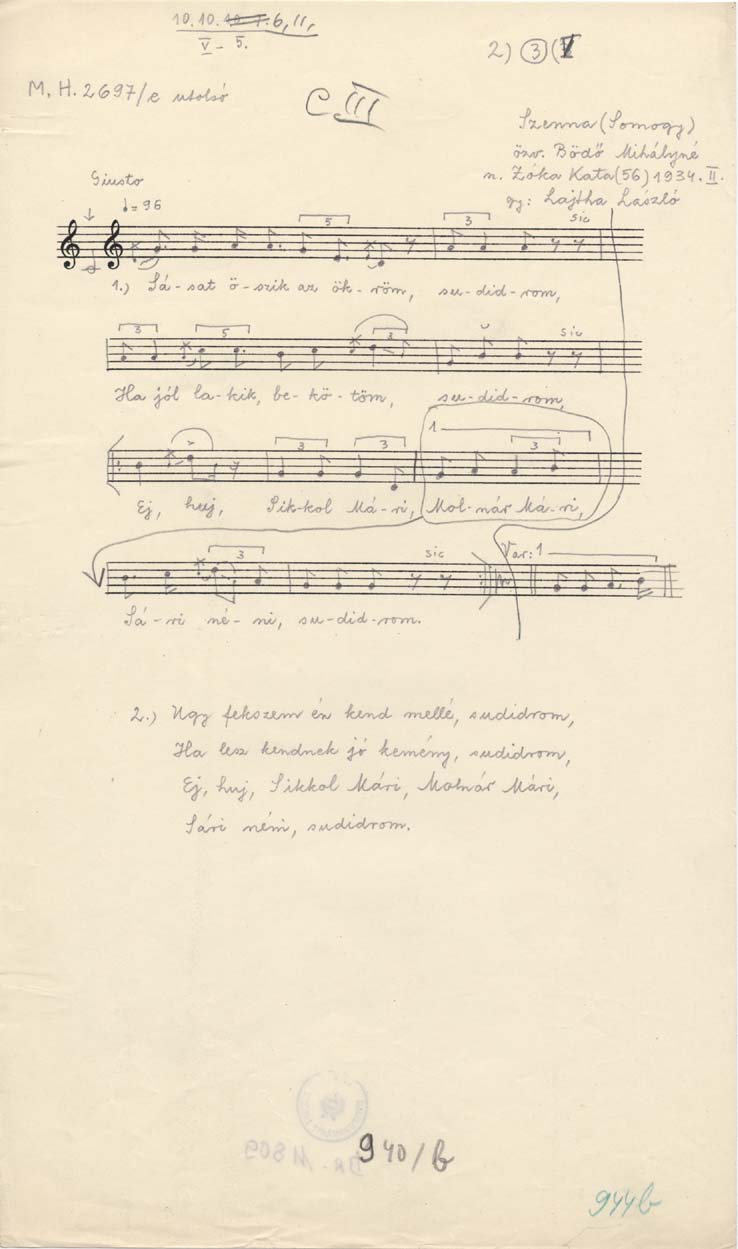 10.10. 10 7. 6, 11,
V - 5.
2) (3) (V
M. H. 2697/e utolsó
C III
Szenna (Somogy)
özv. Bödő Mihályné
n. Zóka Kata (56) 1934. II.
gy: Lajtha László
Giusto
♩= 96
5 3 sic
1.) Sá-sat ö-szik az ök-röm, su-did-rom,
3 5 3 sic
Ha jól la-kik, be-kö-töm, su-did-rom,
3 3 1 3
Ej, huj, Sik-kol Má-ri, Mol-nár Má-ri,
3 sic Var: 1
Sá-ri né-ni, su-did-rom.
2.) Ugy fekszem én kend mellé, sudidrom,
Ha lesz kendnek jó kemény, sudidrom,
Ej, huj, Sikkol Mári, Molnár Mári,
Sári néni, sudidrom.
940/b
944b